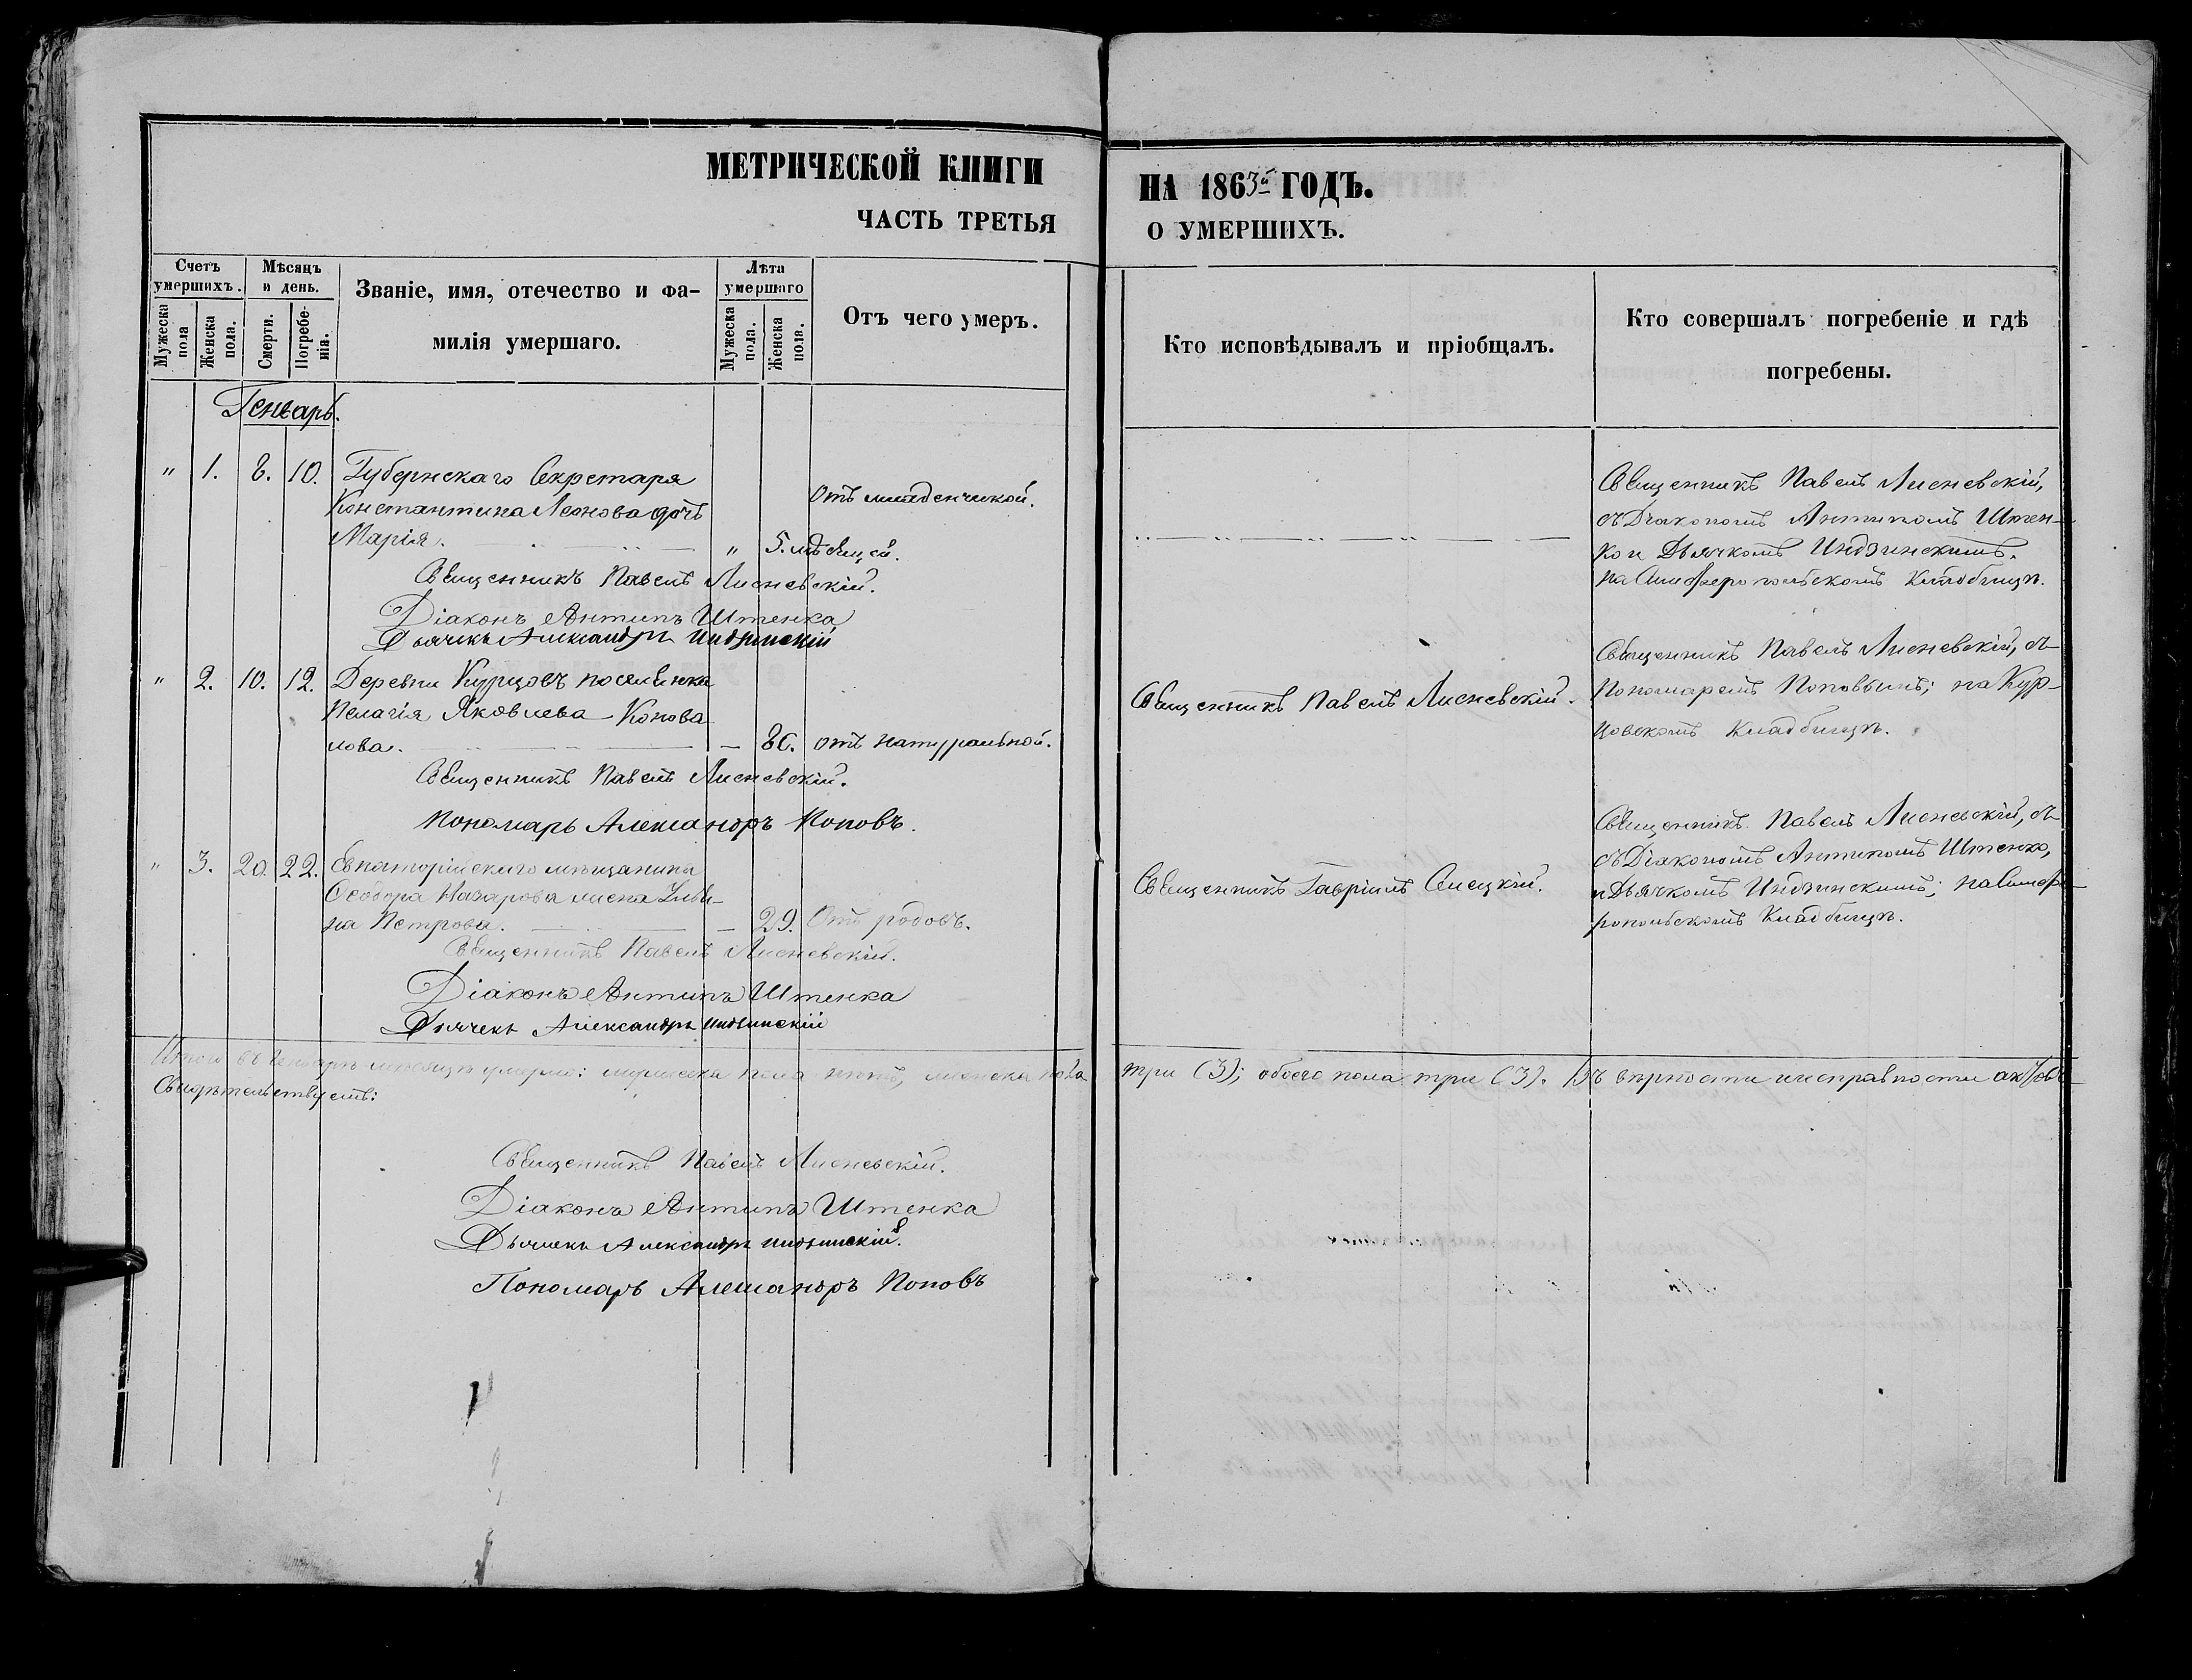 МЕТРИЧЕСКОЙ КНИГИ
ЧАСТЬ ТРЕТЬЯ
Счетъ умершихъ.
Мужеска пола
Женска пола.
Мѣсяцъ и день.
Смерти.
Погребенія.
Званіе, имя, отечество и фа-
милія умершаго.
Лѣта умершаго
Мужеска пола.
Женска пола.
Отъ чего умеръ.
Генварь.
" 1. 8. 10. Губернскаго Секретаря
Константина Леонова дочь
Отъ младенческой.
Марія. " 5. мѣсяцей.
Священникъ Павелъ Лисневскій.
Діаконъ Антипъ Штенка
Дьячекъ Александръ Индзинскій
" 2. 10. 12. Деревни Курцовъ поселянка
Пелагія Яковлева Конова
лова. — 80. отъ натуральной.
Священникъ Павелъ Лисневскій.
Пономарь Александръ Поповъ.
" 3. 20. 22. Евпаторійскаго мѣщанина
Ѳеодора Назарова жена
на Петрова. — 29. Отъ родовъ.
Священникъ Павелъ Лисневскій.
Діаконъ Антипъ Штенка
Дьячекъ Александръ Индзинскій
Итого въ Генварѣ мѣсяцѣ умерло: мужеска пола нѣтъ, женска пола
свидѣтельствуемъ:
Священникъ Павелъ Лисневскій.
Діаконъ Антипъ Штенка
Дьячекъ Александръ Индзинскій.
Пономарь Александръ Поповъ
НА 1863й ГОДЪ.
О УМЕРШИХЪ.
Кто исповѣдывалъ и пріобщалъ.
Кто совершалъ погребеніе и гдѣ
погребены.
Священникъ Павелъ Лисневскій,
съ Діакономъ Антипомъ Штен-
ко и Дьячкомъ Индзинскимъ.
на Симферопольскомъ Кладбищѣ.
Священникъ Павелъ Лисневскій.
Священникъ Павелъ Лисневскій, съ
Пономаремъ Поповымъ; на Кур-
цовскомъ Кладбищѣ.
Священникъ Гавріилъ
Священникъ Павелъ Лисневскій, съ
съ Діакономъ Антипомъ Штенко,
и Дьячкомъ Индзинскимъ; на Симфе-
ропольскомъ Кладбищѣ.
три (3); обоего пола три (3). Въ вѣрности и исправности актовъ